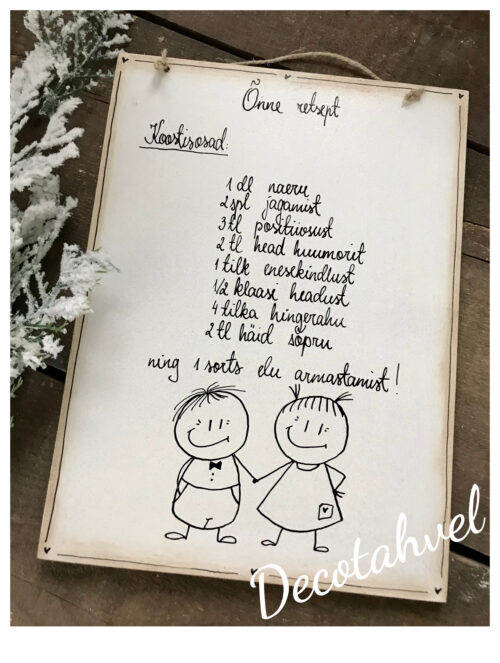 Õnne retsept
Koostisosad:
1 dl naeru
2 spl jagamist
3 tl positiivsust
2 tl head huumorit
1 tilk enesekindlust
1/2 klaasi headust
4 tilka hingerahu
2 tl häid sõpru
ning 1 sorts elu armastamist!
Decotahvel